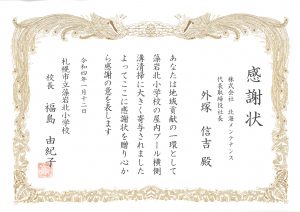 感謝状
株式会社 北海メンテナンス
代表取締役社長
外塚 信吉 殿
あなたは地域貢献の一環として
藻岩北小学校の屋内プール横側
溝清掃に大きく寄与されました
よってここに感謝状を贈り心か
ら感謝の意を表します
令和四年一月十二日
札幌市立藻岩北小学校
校長 福島 由紀子